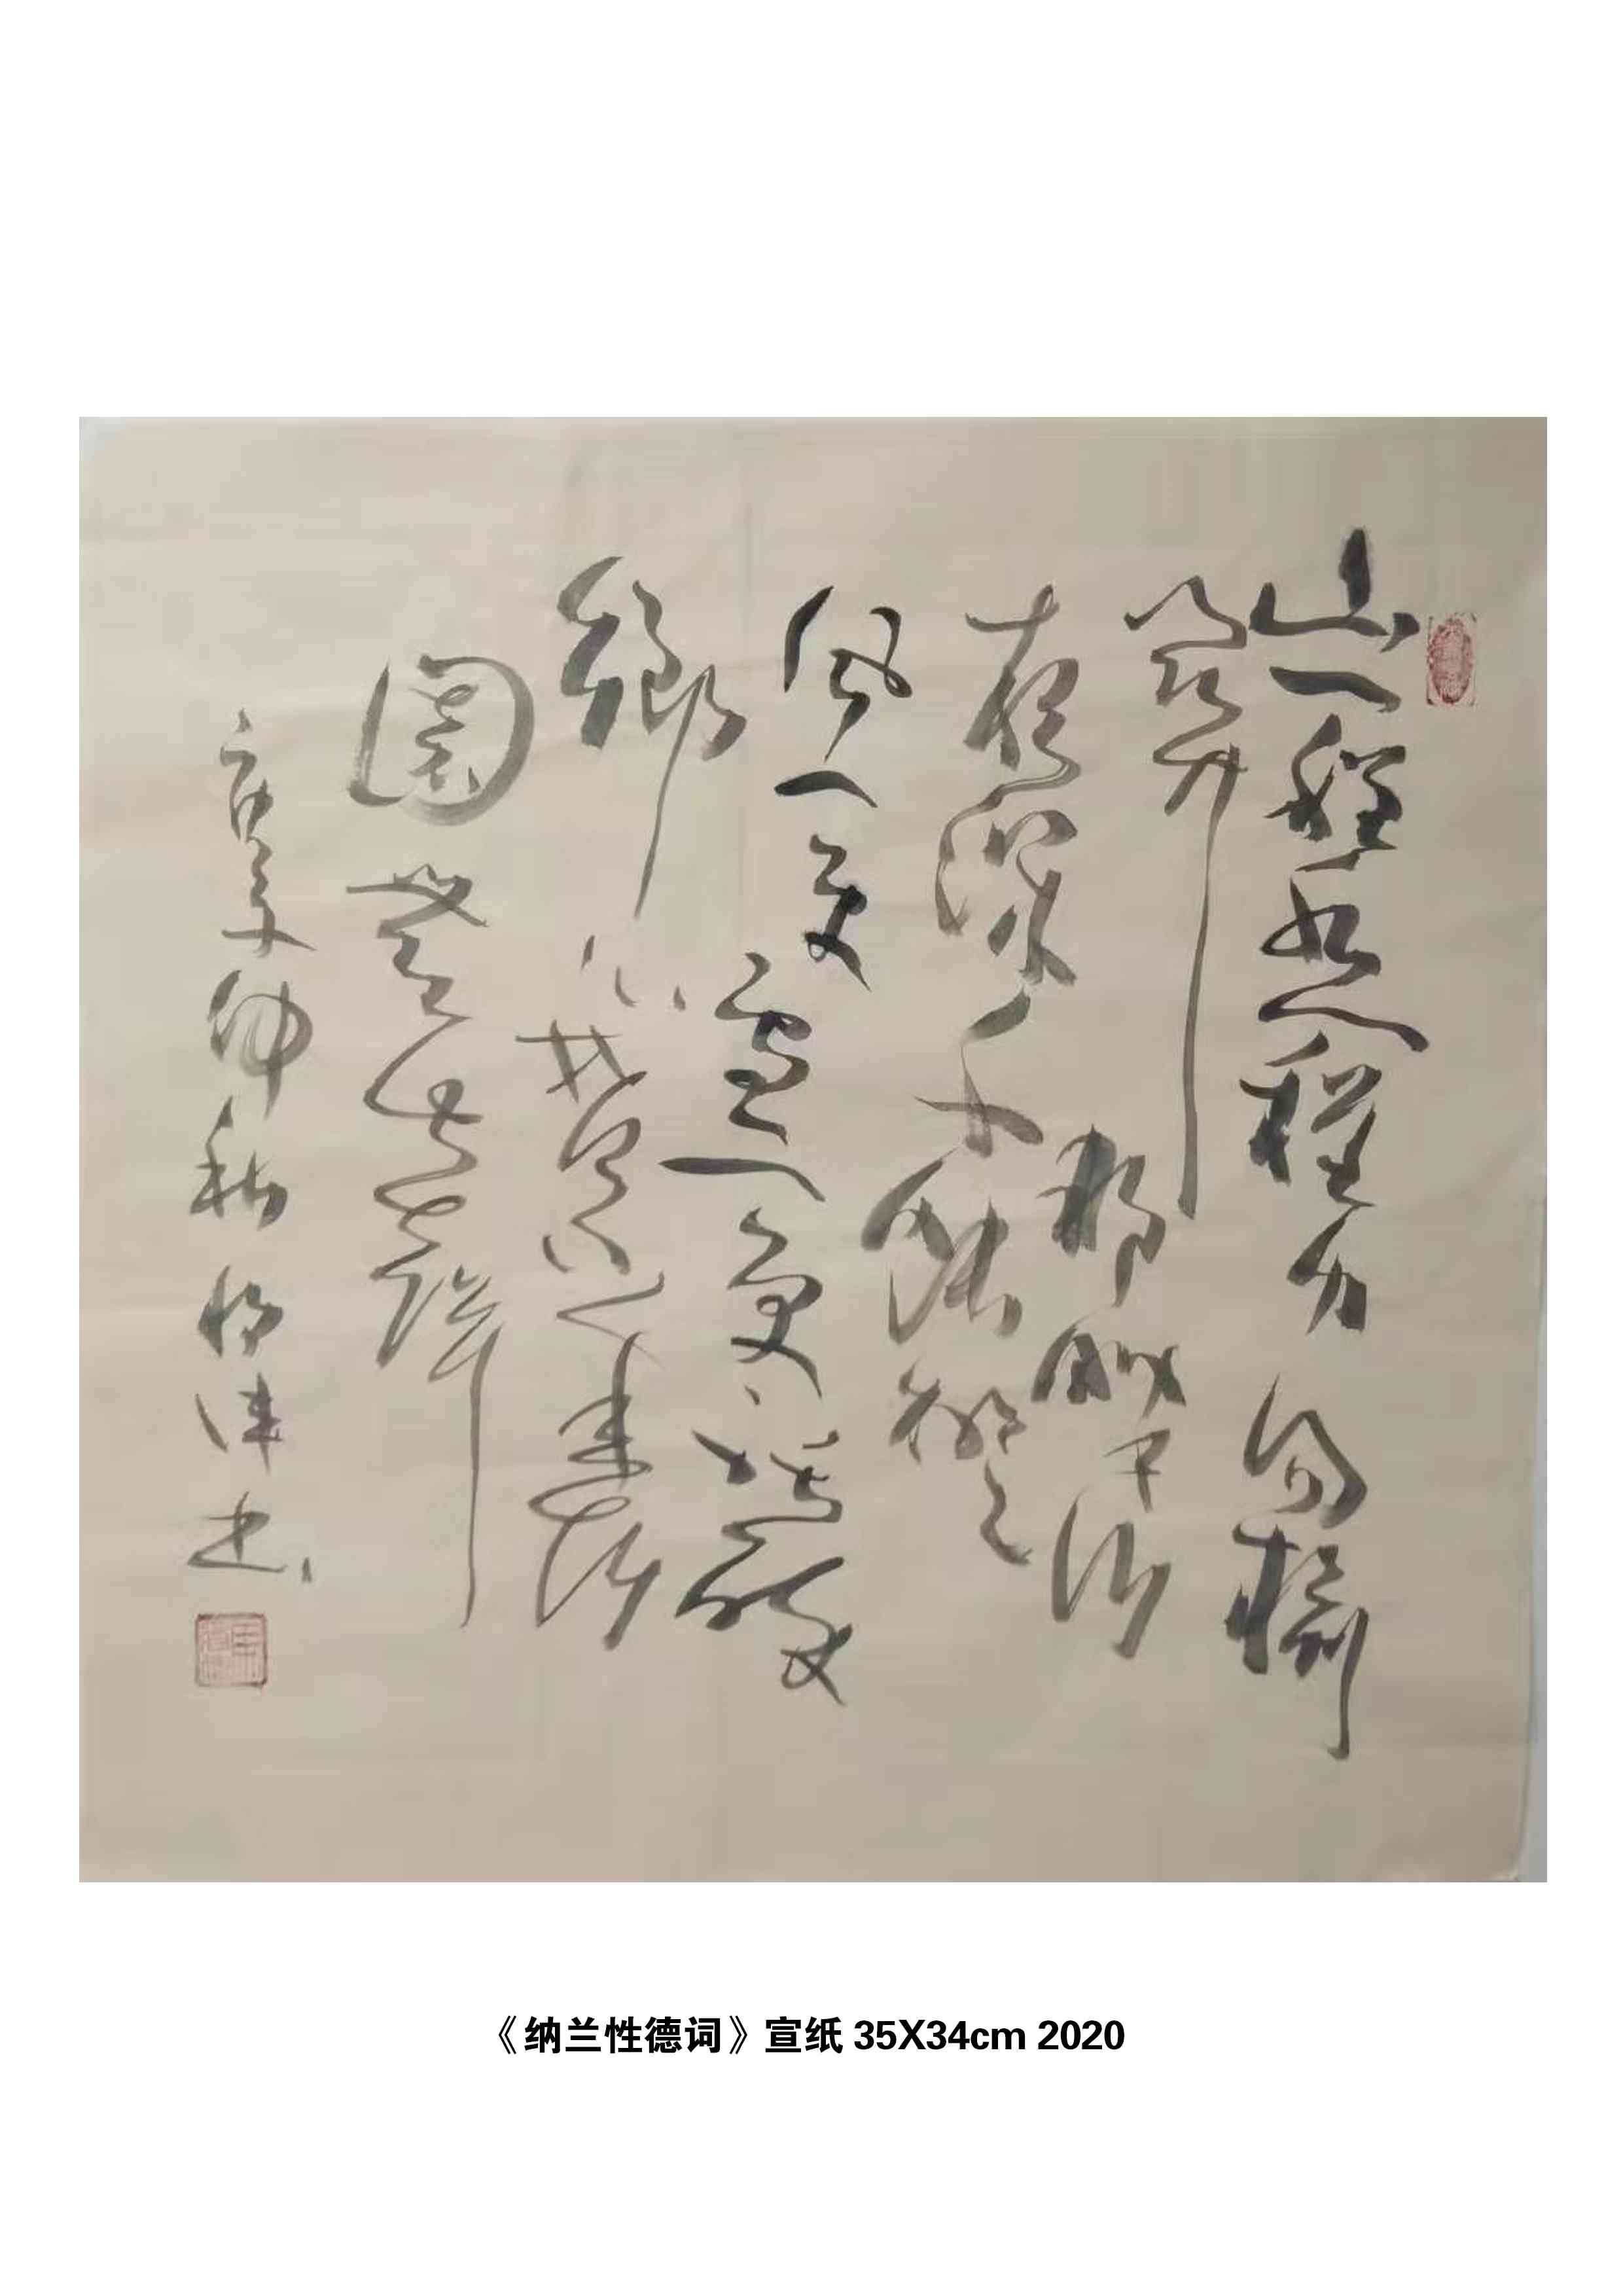 山一程水一程身向榆
關那畔行
夜深千帳燈
風一更雪一更聒碎
鄉心夢不成故
園無此聲
庚子仲秋 書
《纳兰性德词》宣纸 35X34cm 2020